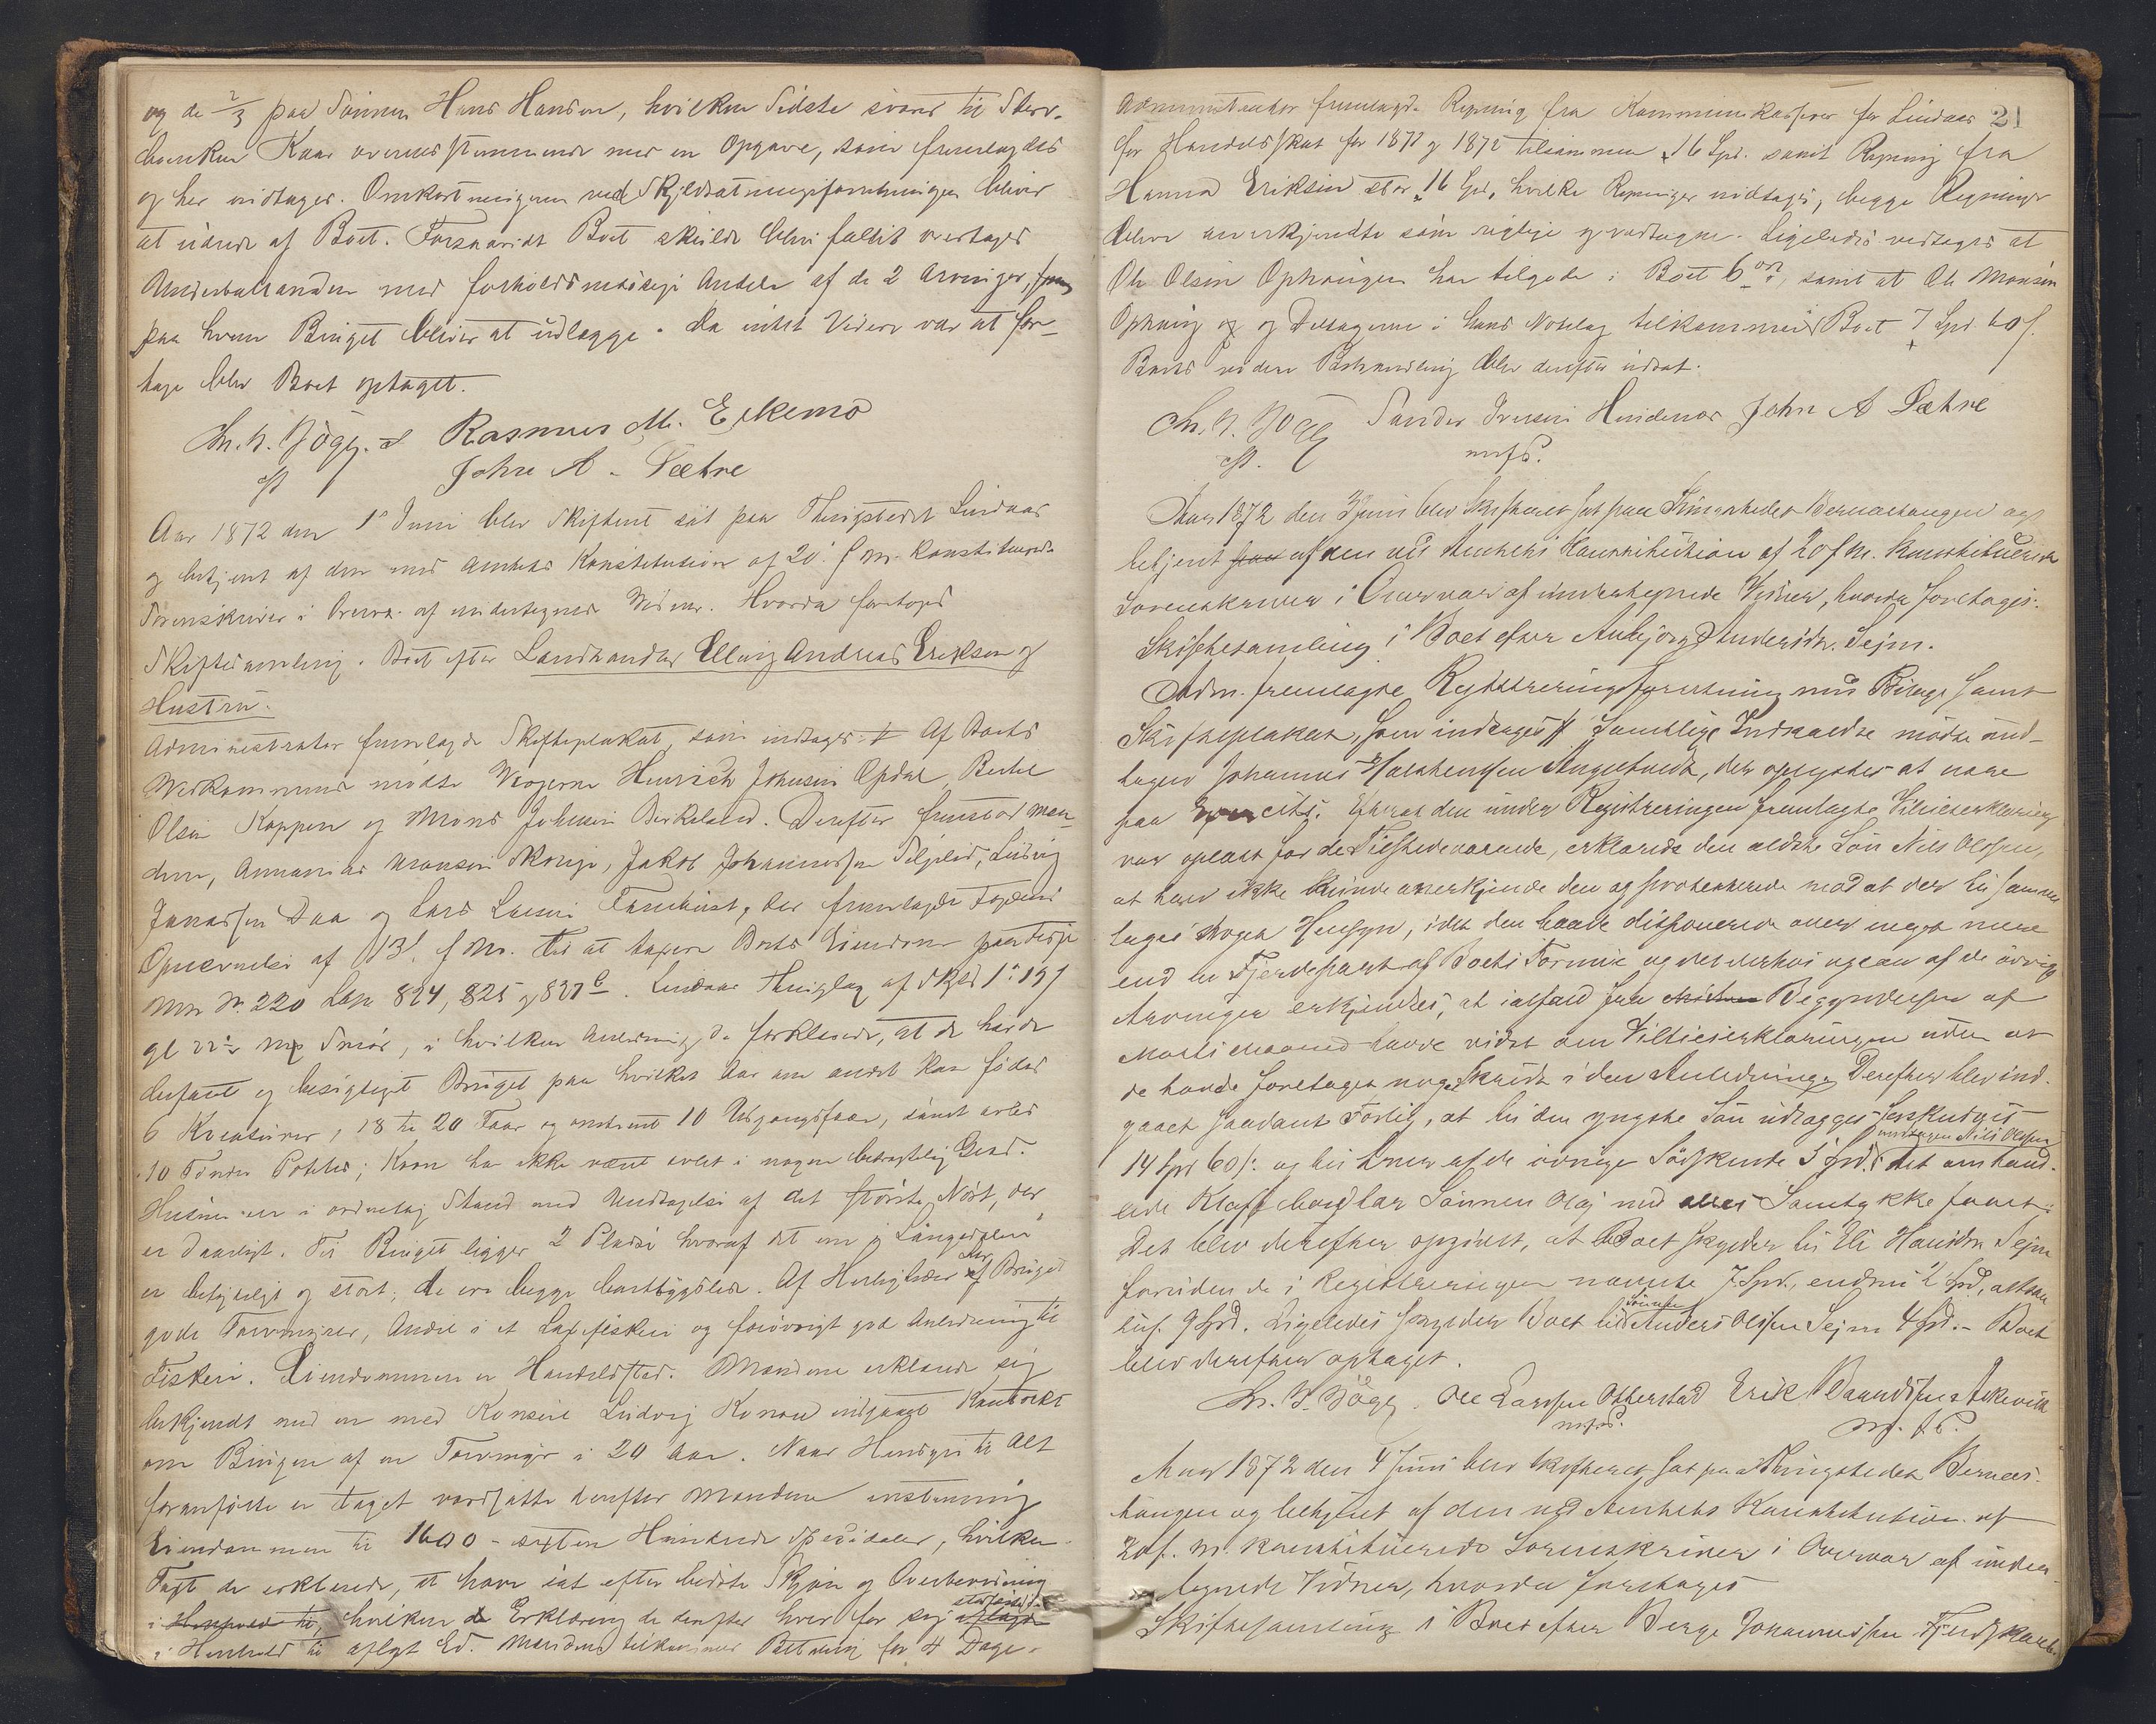 og de 2/3 paa Sønnen Hans Hansen, hvilken Sidste svarer til Sterv-
Kaar overensstemmende med en Opgave, som fremlagdes
og her indtages. Omkostningerne ved Skyldsætningsforretningen bliver
at udrede af Boet. Forsaavidt Boet skulde blive fallit overtages
Underbalancen med forholdsmæssige Andele af de 2 Arvinger,
paa hvem Bruget bliver at udlægge. Da intet Videre var at fore-
tage blev Boet optaget.
Rasmus M. Eikemo
cst John A. Sæthre
Aar 1872 den 1e Juni blev Skifteret sat paa Thingstedet Lindaas
og betjent af den med Amtets Konstitution af 20. f. M. konstituerede
Sorenskriver i Overvær af undertegnede Vidner. Hvorda foretoges
Skiftesamling i Boet efter Landhandler Elling Andreas Eriksen og
Hustru.
Administrator fremlagde Skifteplakat, som indtages. Af Boets
Vedkommende mødte Værgerne Henrich Johnsen Opdal, Berthel
Olsen Koppen og Mons Johnsen Birkeland. Derefter fremstod Mæn-
dene, Annanias Monsen Skorge, Jakob Johannessen, Ludvig
Jonassen Daa og Lars Larsen, der fremlagde Fogdens
Opnævnelse af 13. f. M. til at taxere Boets Eiendom
Mtr. No. 220 Løbe 824, 825 og 827 c. Lindaas Thinglag af Skyld
gl. Smør, i hvilken Anledning de forklarede, at de havde
befaret og besigtiget Bruget paa hvilket Aar om andet kan fødes
6 Kreaturer, 18 til 20 Faar og omtrent 10 Udgangsfaar, samt avles
10 Tønder Poteter; Korn har ikke været avlet i nogen betydelig Grad.
Husene er i ordentlig Stand med Undtagelse af det største Nøst, der
er daarligt. Til Bruget ligger 2 Pladse hvoraf det ene
er betydeligt og stort; de ere begge bortbygslede. Af Herligheder har Bruget
gode Torvmyrer, Andel i et Laxefiskeri og forøvrigt god Anledning til
Fiskeri. Eiendommen er Handelssted. Mændene erklærede sig
bekjendt med en med Konsul Ludvig Konow indgaaet Kontrakt
om Brugen af en Torvmyr i 20 Aar. Naar Hensyn til Alt
foranførte er taget værdsatte derefter Mændene enstemmig
Eiendommen til 1600 - sexten Hundrede Speciedaler, hvilken
Taxt de erklærede, at have sat efter bedste Skjøn og Overbevisning
i Henhold til, hvilken Erklæring de derefter hver for sig aflagde
i Henhold til aflagt Ed. Mændene tilkommer Betaling for 4 Dage.
21
Administrator fremlagde Regning fra Kommunekasserer for Lindaas
for Handelsskat for 1871 og 1872 tilsammen 16 Spd. samt Regning fra
Hanna Eriksen stor 16 Spd, hvilke Regninger indtages, begge Regninger
bleve anerkjendte som rigtige og vedtagne. Ligeledes vedtages at
Ole Olsen Ophaugen har tilgode i Boet 6 ort, samt at Ole Monsen
Ophaug og Deltagerne i hans Notelag tilkommer Boet 7 Spd 60 s.
Boets videre Behandling blev derefter udsat.
Sander Iversen Hundenes John A Sæthre
cst. m.f.P.
Aar 1872 den 3 Juni blev Skifteret sat paa Thingstedet Bernæstangen og
betjent af den ved Amtets Konstitution af 20 f.M. konstituerede
Sorenskriver i Overvær af undertegnede Vidner, hvorda foretoges:
Skiftesamling i Boet efter Anbjørg Andersdtr. Sejm.
Adm. fremlagde Registreringsforretning med Bilage samt
Skifteplakat, som indtages. Samtlige Indkaldte mødte und-
tagen Johannes Halstensen Angeltveit, der oplystes at være
paa. Efterat den under Registreringen fremlagte Villieserklæring
var oplæst for de Tilstedeværende, erklærede den ældste Søn Nils Olsen,
at han ikke kunde anerkjende den og protesterede mod at der til samme
toges noget Hensyn, idet den havde disponeret over meget mere
end en Fjerdepart af Boets Formue og det derhos ogsaa af de øvrige
Arvinger erkjendtes, at ialfald fra Begyndelsen af
Marts Maaned havde vidst om Villieserklæringen uden at
de havde foretaget noget Skridt i den Anledning. Derefter blev ind-
gaaet saadant Forlig, at til den yngste Søn udlægges forskudsvis
14 Spd 60 s. og til hver af de øvrige Sødskende undtagen Nils Olsen 5 Spd. det omhand-
lede Klap har Sønnen Olaj med alles Samtykke faaet.
Det blev derefter opgivet, at Boet skylder til Eli Hansdtr Sejm
foruden de i Registreringen nævnte 7 Spd., endnu 2 Spd, altsaa
tils. 9 Spd. Ligeledes skylder Boet til Sønnen Anders Olsen Sejm 4 Spd. - Boet
blev derefter optaget.
Ole Larsen Otterstad Erik Baardsen Askevik
m.f.P. m.f.P.
Aar 1872 den 4 Juni blev Skifteret sat paa Thingstedet Bernæs-
tangen og betjent af den ved Amtets Konstitution af
20 f. M. konstituerede Sorenskriver i Overvær af under-
tegnede Vidner, hvorda foretoges
Skiftesamling i Boet efter Berge Johannessen